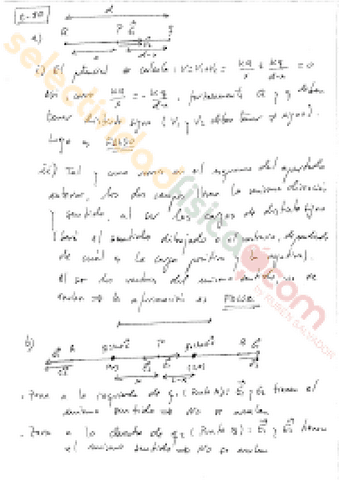 E-30
d
a) Q P q
x d-x
i) El potencial se calcula: V = V1 + V2 = KQ/x + Kq/d-x = 0
Así, como KQ/x = - Kq/d-x, forzosamente Q y q deben
tener distinto signo (V1 y V2 deben tener ≠ signo).
Luego es FALSO
ii) Tal y como vemos en el esquema del apartado
anterior, los dos campos llevan la misma dirección
y sentido, al ser las cargas de distinto signo
(será el sentido dibujado o el contrario, dependiendo
de cuál es la carga positiva y la negativa).
Al ser dos vectores del mismo sentido no se
anulan ⇒ la afirmación es FALSA
b) A P B
. Zona a la izquierda de q1 (Punto A): E1 y E2 tienen el
mismo sentido ⇒ No se anulan
. Zona a la derecha de q2 (Punto B): E1 y E2 tienen
el mismo sentido ⇒ No se anulan
selectividad física.com
by RUBEN SALVADOR